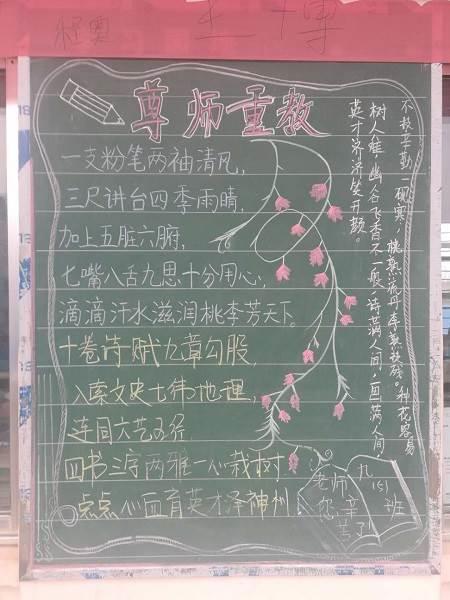 程奥
王一博
尊师重教
一支粉笔两袖清风，
三尺讲台四季雨晴，
加上五脏六腑，
七嘴八舌九思十分用心，
滴滴汗水滋润桃李芳天下
十卷诗赋九章勾股，
八索文史七纬地理，
连同六艺五经
四书三字两雅一心栽树
点点心血育英才泽神州
不投辛勤一砚寒，桃熟流丹李熟枝残。种花容易
树人难，幽谷飞香不一般，诗满人间，画满人间，
英才济济笑开颜。
老师
您辛苦了
九（5）班